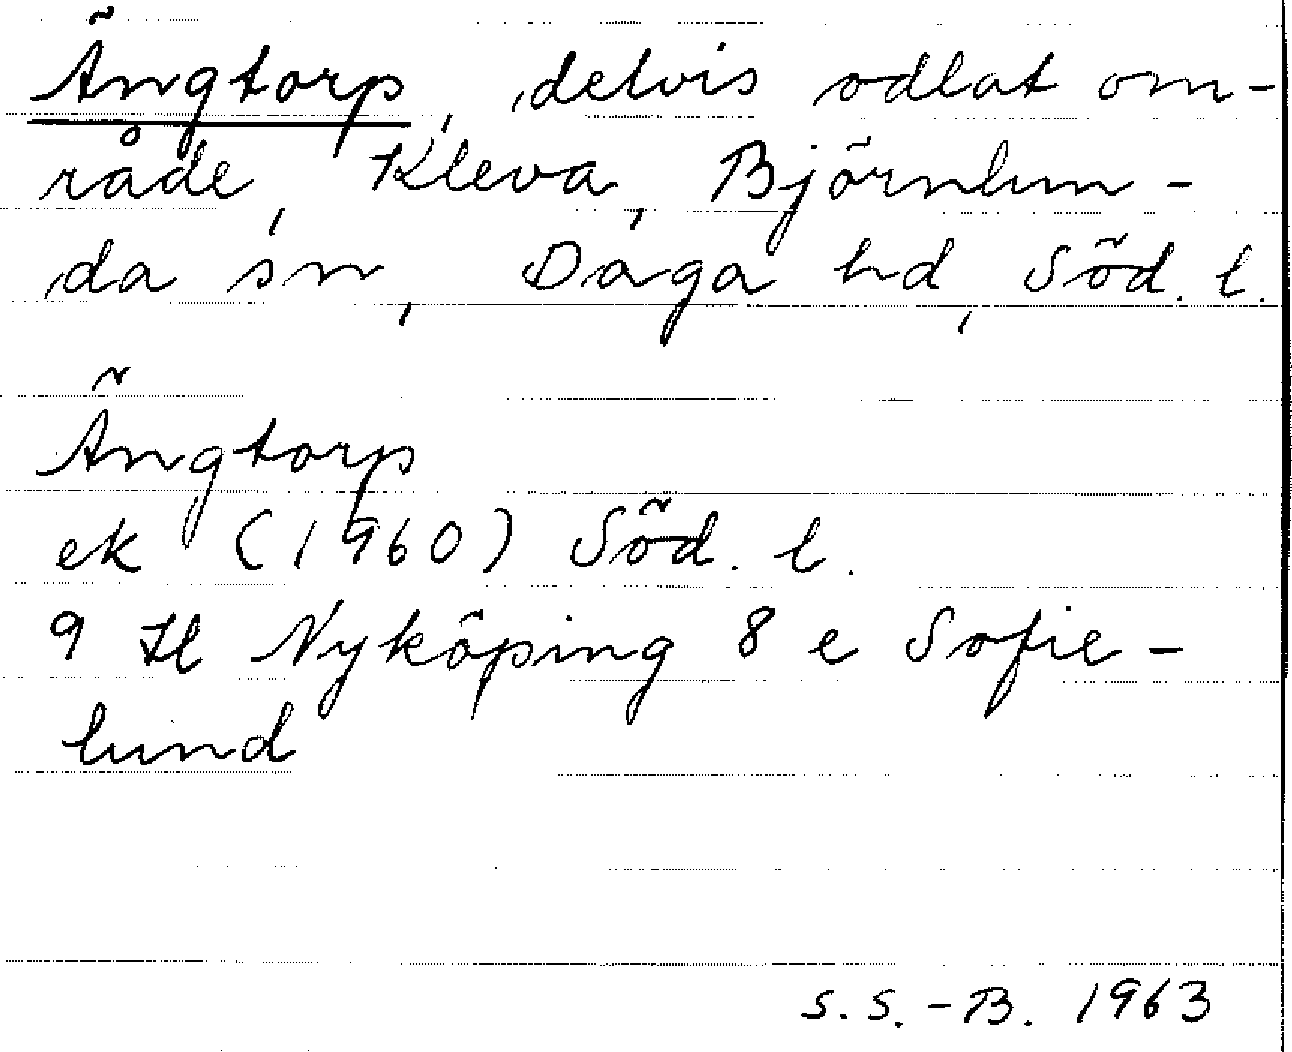 Ängtorp, delvis odlat om-
råde, Kleva, Björnlun-
da sn, Daga hd, Söd. l.
Ängtorp
ek (1960) Söd. l.
9 H Nyköping 8 e Sofie-
lund
S. S. - B. 1963